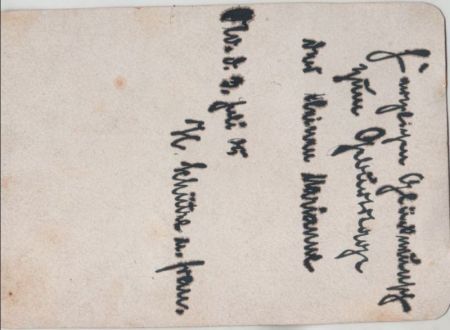 Herzlichen Glückwunsch
zum Geburtstage
der kleinen Marianne
d. 3. Juli 05
H. Schütze u. Frau.